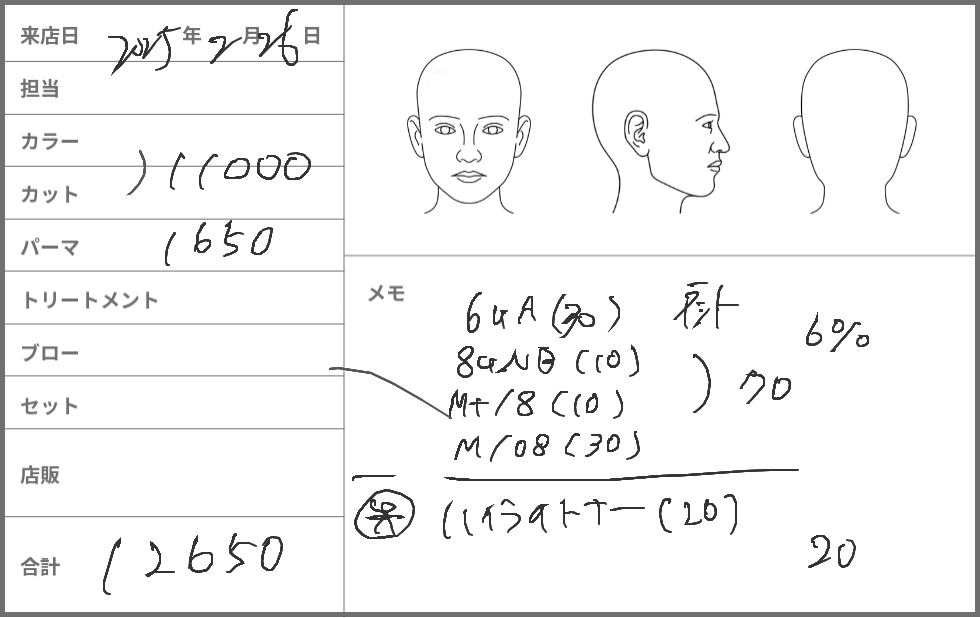 来店日 2025年2月26日
担当
カラー
カット ) 11000
パーマ 1650
トリートメント
ブロー
セット
店販
合計 12650
メモ
6GA (30)
6%
8GNB (10)
) 70
M+/8 (10)
M/08 (30)
ハイライトナー (20)
20